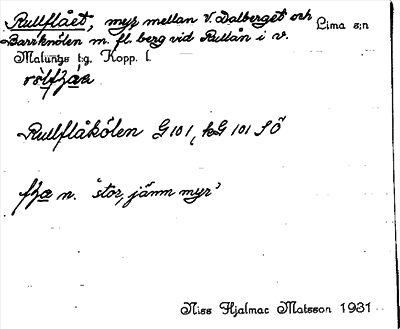 Rullflået, myr mellan V. Dalberget och Lima s:n
Barrknölen m. fl. berg vid Rullån i v.
Malungs t:g. Kopp. l.
Rullflåkölen G 101, kG 101 SÖ
n. "stor, jämn myr"
Niss Hjalmar Matsson 1931